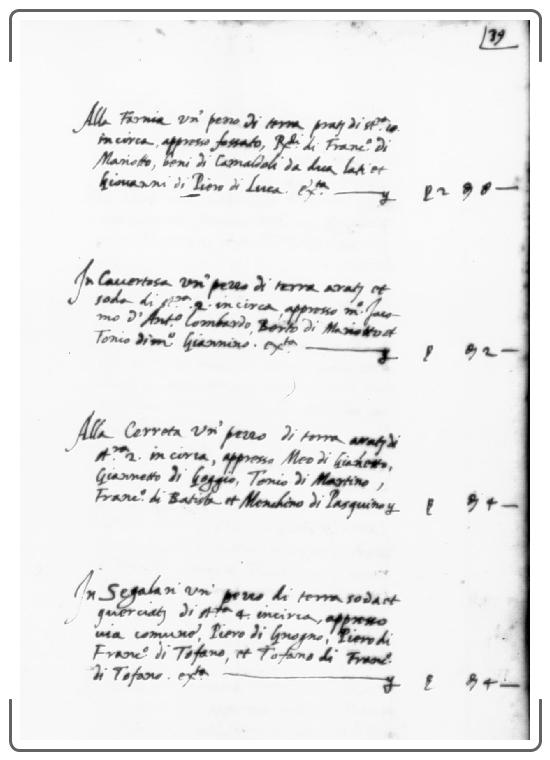 39
Alla Farnia un' pezzo di terra pratj di st.ra 10.
incirca, appresso fossato, Redi di Franc.o di
Mariotto, beni di Camaldoli da dua lati et
Giovanni di Piero di Luca. exta. 2 8
In Cavertosa un' pezzo di terra aratj et
soda di st.ra 2. incirca, appresso m.o Jaco-
mo d'Ant.o Lombardo, Berto di Mariotto et
Tonio di m.o Giannino. exta. 2
Alla Cerreta un' pezzo di terra aratj di
st.ra 2. incirca, appresso Meo di
Giannetto di Goggio, Tonio di Martino,
Franc.o di Batista et Menchino di Pasquino 4
In Segalari un' pezzo di terra soda et
querciatj di st.ra 4. incirca, appresso
via comune, Piero di Gnogno, Piero di
Franc.o di Tofano, et Tofano di Franc.o
di Tofano. exta. 4